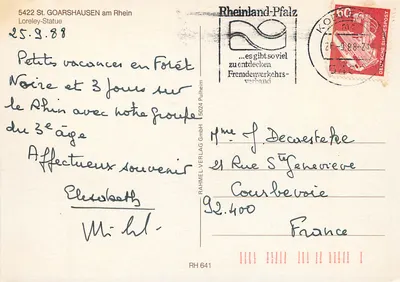 5422 St. GOARSHAUSEN am Rhein
Loreley-Statue
25.9.88
Petites vacances en Forêt
Noire et 3 jours sur
le Rhin avec notre groupe
du 3e âge
Affectueux souvenir
Elisabeth
RAHMEL-VERLAG GmbH 5024 Pulheim
RH 641
Rheinland-Pfalz
...es gibt so viel
zu entdecken
Fremdenverkehrs-
verband
60
DEUTSCHE BUNDESPOST
Mme J. Decaesteke
21 Rue Ste Genevieve
Courbevoie
92.400
France